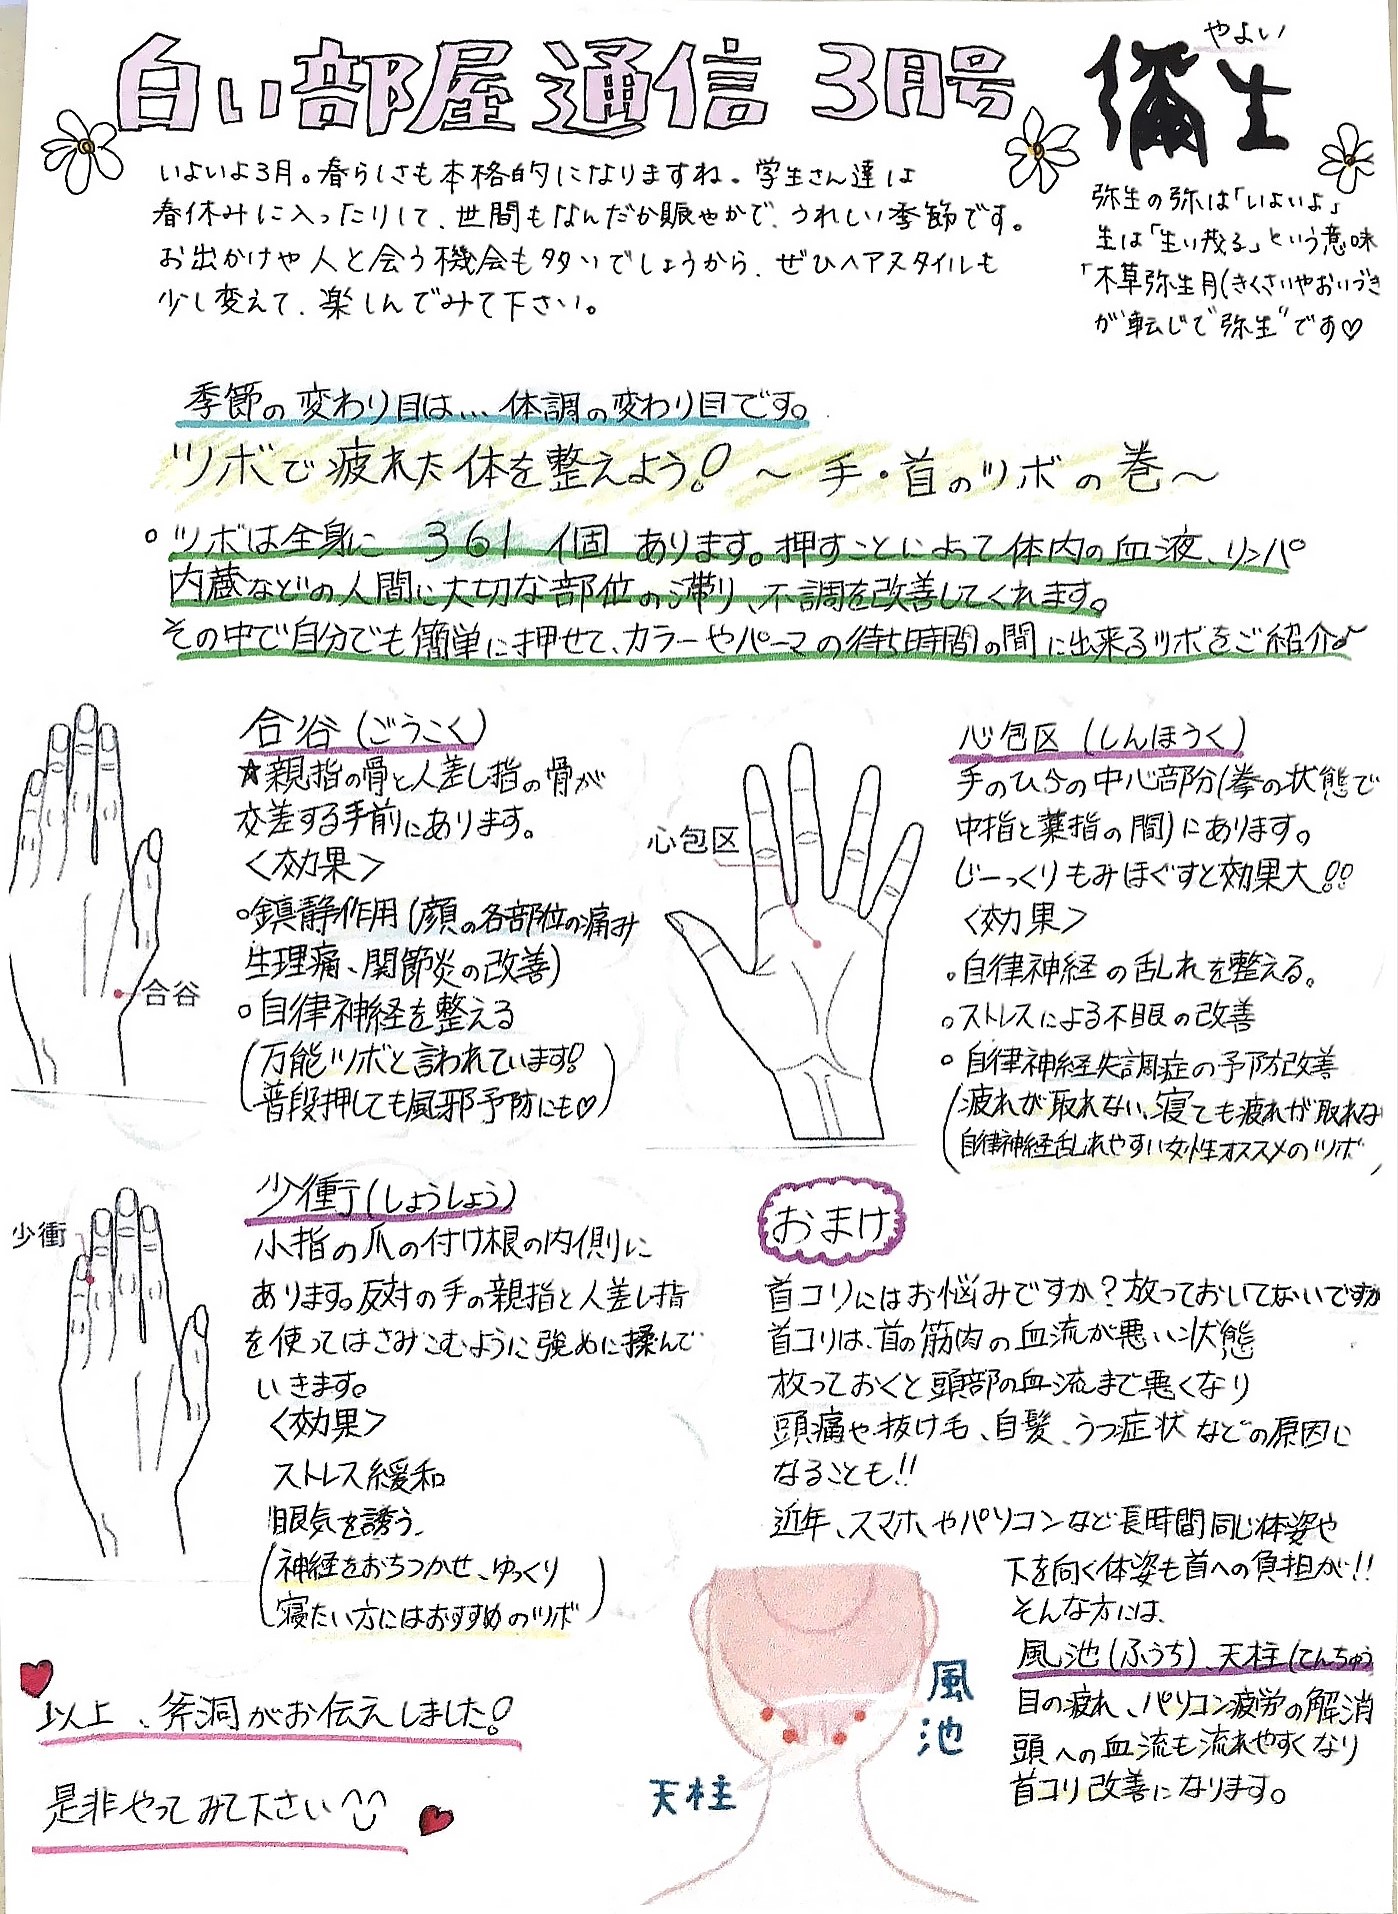 白い部屋通信 3月号
やよい
彌生
いよいよ3月。春らしさも本格的になりますね。学生さん達は
春休みに入ったりして、世間もなんだか賑やかで、うれしい季節です。
お出かけや人と会う機会も多いでしょうから、ぜひヘアスタイルも
少し変えて、楽しんでみて下さい。
弥生の弥は「いよいよ」
生は「生い茂る」という意味
「木草弥生月(きくさいやおいづき
が転じて"弥生"です♡
季節の変わり目は…体調の変わり目です。
ツボで疲れた体を整えよう!〜手・首のツボの巻〜
○ツボは全身に 361個 あります。押すことによって体内の血液、リンパ
内蔵などの人間に大切な部位の滞り、不調を改善してくれます。
その中で自分でも簡単に押せて、カラーやパーマの待ち時間の間に出来るツボをご紹介♪
合谷(ごうこく)
★親指の骨と人差し指の骨が
交差する手前にあります。
<効果>
○鎮静作用(顔の各部位の痛み
生理痛、関節炎の改善)
○自律神経を整える
(万能ツボと言われています!
普段押しても風邪予防にも♡)
合谷
心包区(しんほうく)
手のひらの中心部分(拳の状態で
中指と薬指の間)にあります。
じーっくりもみほぐすと効果大!!
<効果>
○自律神経の乱れを整える。
○ストレスによる不眠の改善
○自律神経失調症の予防改善
(疲れが取れない、寝ても疲れが取れな
自律神経乱れやすい女性オススメのツボ)
心包区
少衝(しょうしょう)
小指の爪の付け根の内側に
あります。反対の手の親指と人差し指
を使ってはさみこむように強めに揉んで
いきます。
<効果>
ストレス緩和
眠気を誘う、
(神経をおちつかせ、ゆっくり
寝たい方にはおすすめのツボ)
少衝
おまけ
首コリにはお悩みですか?放っておいてないですか
首コリは、首の筋肉の血流が悪い状態
放っておくと頭部の血流まで悪くなり
頭痛や抜け毛、白髪、うつ症状などの原因に
なることも!!
近年、スマホやパソコンなど長時間同じ体姿や
下を向く体姿も首への負担が!!
そんな方には、
風池(ふうち)、天柱(てんちゅう
目の疲れ、パソコン疲労の解消
頭への血流も流れやすくなり
首コリ改善になります。
風池
天柱
以上、斧洞がお伝えしました!
是非やってみて下さい